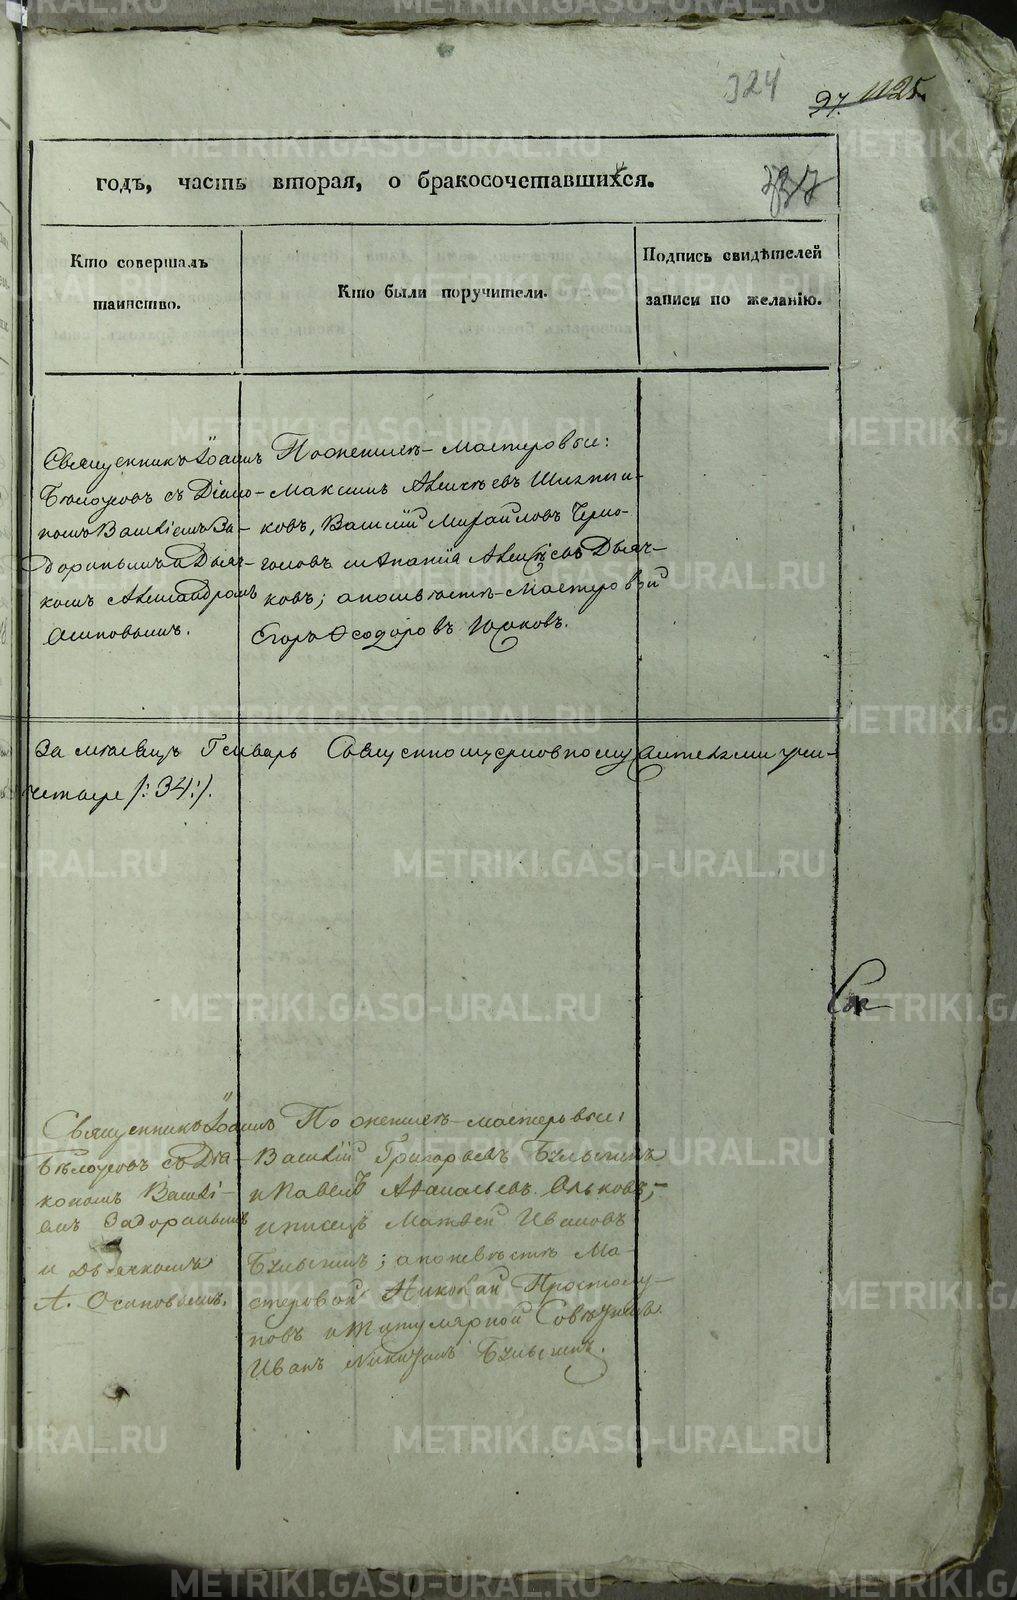 324
27. 1125.
337
годъ, часть вторая, о бракосочетавшихся.
Кто совершалъ
таинство.
Кто были поручители.
Подпись свидѣтелей
записи по желанію.
Священникъ Іоаннъ
Бѣлоусовъ съ Діако-
номъ Василіемъ За-
доринымъ и Дьяч-
комъ Александромъ
Осиповымъ.
По женихѣ мастеровые:
Максимъ Алексѣевъ
ковъ, Василій Михайловъ Черно-
головъ и Ananiя Алексѣевъ Дьяч-
ковъ; а по невѣстѣ Мастеровой
Егоръ Ѳеодоровъ
За мѣсяцъ Генварь
четыре /:34:/.
Священникъ Іоаннъ
Бѣлоусовъ съ Діа-
кономъ Василі-
емъ Задоринымъ
и Дьячкомъ
А. Осиповымъ.
По женихѣ мастеровые:
Василій Григорьевъ Булыгинъ
и Павелъ Аѳанасьевъ Ольковъ,
и писецъ Матвей Ивановъ
Булыгинъ; а по невѣстѣ Ма-
стеровой Николай Простолу-
повъ и Титулярной Совѣтникъ
Иванъ Никитинъ Булыгинъ.
METRIKI.GASO-URAL.RU